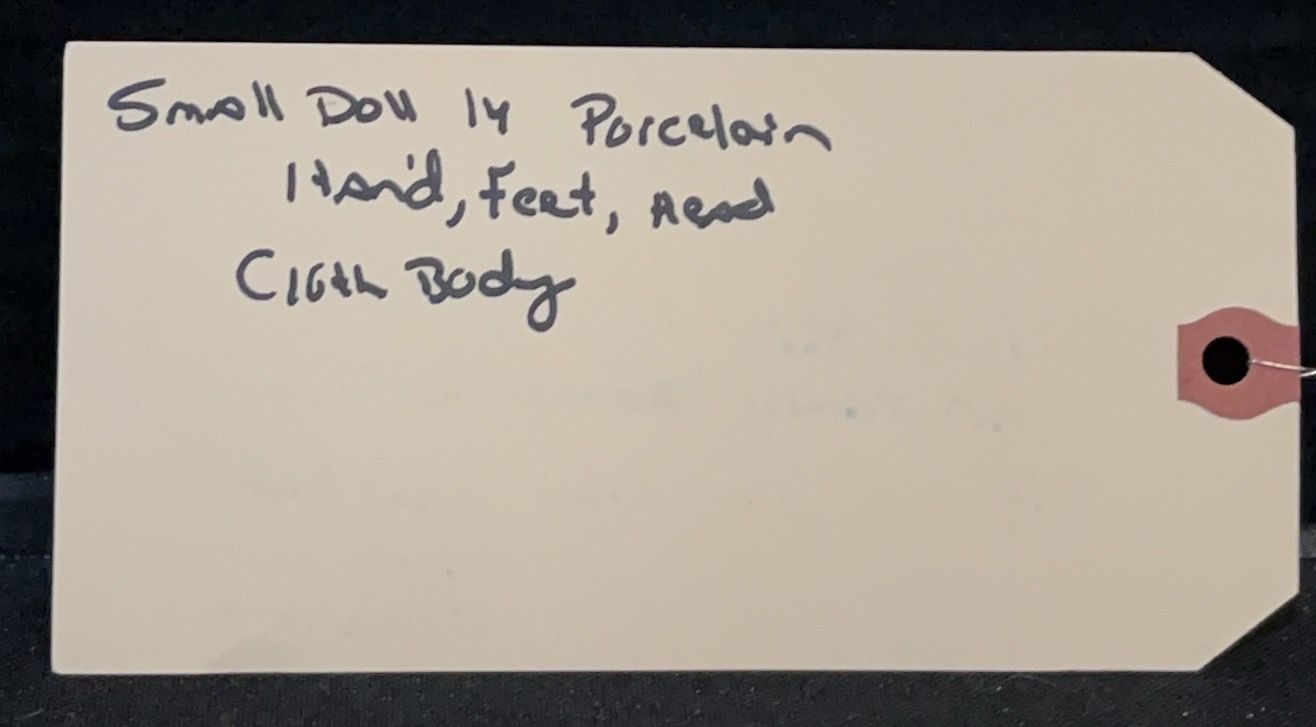 Small Doll 14 Porcelain
Han'd, Feet, Head
Cloth Body